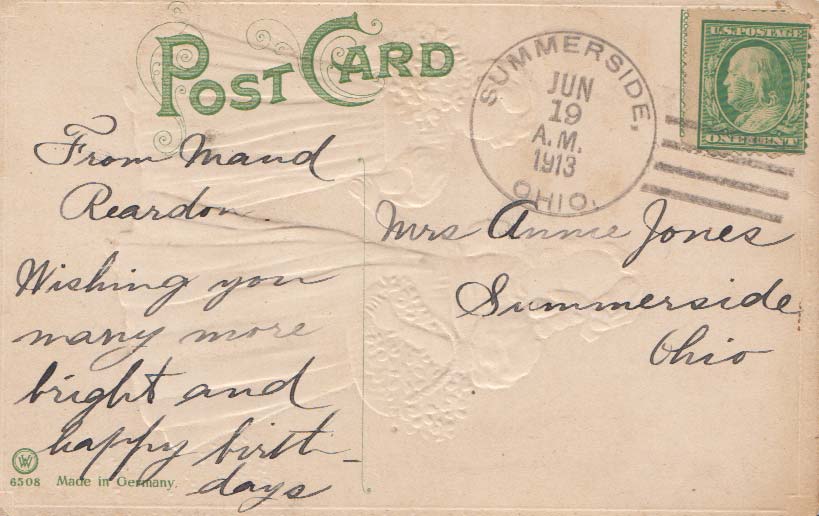 POST CARD
SUMMERSIDE,
JUN
19
A.M.
1913
OHIO.
U.S. POSTAGE
ONE CENT
From Maud
Reardon
Wishing you
many more
bright and
happy birth-
days
Mrs Annie Jones
Summerside
Ohio
W
6508 Made in Germany.